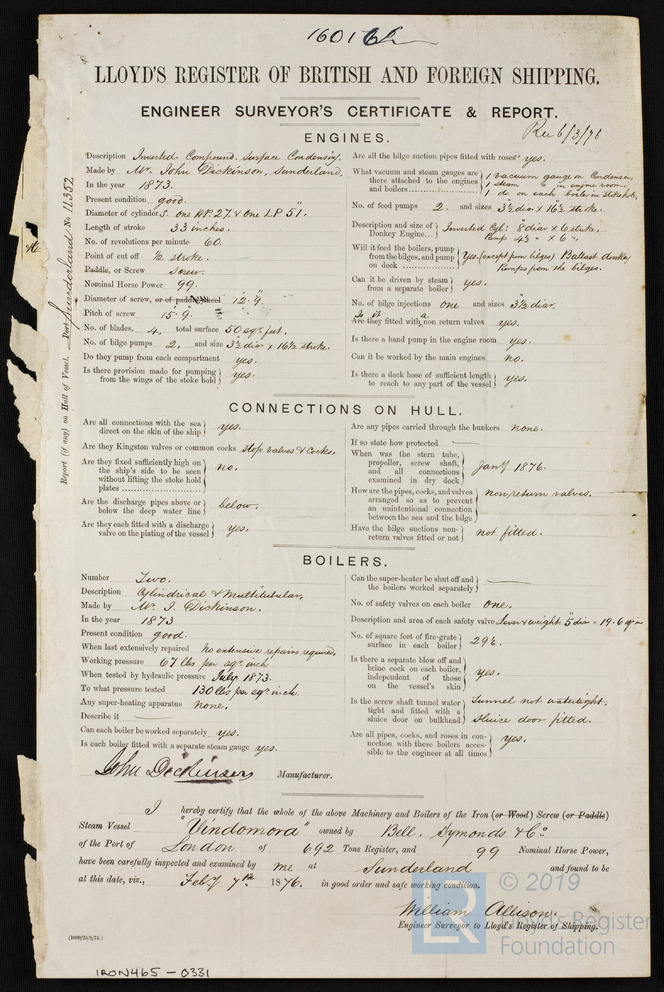 LLOYD'S REGISTER OF BRITISH AND FOREIGN SHIPPING.
ENGINEER SURVEYOR'S CERTIFICATE & REPORT.
Rec 6/3/76
ENGINES.
Report (if any) on Hull of Vessel. Port Sunderland No 11,352
Description Inverted Compound. Surface Condensing.
Made by Mr. John Dickinson, Sunderland.
In the year 1873.
Present condition good.
Diameter of cylinders. one H.P. 27. & one L.P. 51.
Length of stroke 33 inches.
No. of revolutions per minute 60.
Point of cut off ½ stroke.
Paddle, or Screw Screw.
Nominal Horse Power 99.
Diameter of screw, or of paddle wheel 12.9.
Pitch of screw 15.9.
No. of blades, 4, total surface 50 sqr. feet.
No. of bilge pumps 2, and size 3½ diar x 16½ stroke.
Do they pump from each compartment yes.
Is there provision made for pumping from the wings of the stoke hold yes.
Are all the bilge suction pipes fitted with roses yes.
What vacuum and steam gauges are there attached to the engines and boilers
1 vacuum gauge on Condenser.
1 steam " in engine room.
1 do on each boiler in stokehole.
No. of feed pumps 2. and sizes 3½ diar x 16½ stroke.
Description and size of Donkey Engine... Inverted Cyl: 8 diar x 6 stroke,
Pump 4½ " x 6 ",
Will it feed the boilers, pump from the bilges, and pump on deck yes. (except from bilges) Ballast donkey
Pumps from the bilges.
Can it be driven by steam from a separate boiler yes.
No. of bilge injections one and sizes 3½ diar.
Is it a
Are they fitted with non return valves yes.
Is there a hand pump in the engine room yes.
Can it be worked by the main engines no.
Is there a deck hose of sufficient length to reach to any part of the vessel yes.
CONNECTIONS ON HULL.
Are all connections with the sea direct on the skin of the ship yes.
Are they Kingston valves or common cocks stop valves & cocks.
Are they fixed sufficiently high on the ship's side to be seen without lifting the stoke hold plates no.
Are the discharge pipes above or below the deep water line below.
Are they each fitted with a discharge valve on the plating of the vessel yes.
Are any pipes carried through the bunkers none.
If so state how protected
When was the stern tube, propeller, screw shaft, and all connections examined in dry dock Jany 1876.
How are the pipes, cocks, and valves arranged so as to prevent an unintentional connection between the sea and the bilge non return valves.
Have the bilge suctions non-return valves fitted or not not fitted.
BOILERS.
Number Two.
Description Cylindrical & Multitubular,
Made by Mr. J. Dickinson.
In the year 1873
Present condition good.
When last extensively repaired no extensive repairs required,
Working pressure 67 lbs per sqr. inch
When tested by hydraulic pressure July 1873.
To what pressure tested 130 lbs per sqr. inch.
Any super-heating apparatus none.
Describe it
Can each boiler be worked separately yes.
Is each boiler fitted with a separate steam gauge yes.
Can the super-heater be shut off and the boilers worked separately
No. of safety valves on each boiler one.
Description and area of each safety valve Lever & weight 5 diar = 19.6
No. of square feet of fire-grate surface in each boiler 29¼.
Is there a separate blow off and brine cock on each boiler, independent of those on the vessel's skin yes.
Is the screw shaft tunnel water tight and fitted with a sluice door on bulkhead Tunnel not watertight,
Sluice door fitted.
Are all pipes, cocks, and roses in connection with these boilers accessible to the engineer at all times yes.
John Dickinson Manufacturer.
I hereby certify that the whole of the above Machinery and Boilers of the Iron (or Wood) Screw (or Paddle)
Steam Vessel "Vindomora" owned by Bell, Symonds & Co
of the Port of London of 692 Tons Register, and 99 Nominal Horse Power,
have been carefully inspected and examined by me at Sunderland and found to be
at this date, viz., Feby 7th 1876. in good order and safe working condition.
William Allison.
Engineer Surveyor to Lloyd's Register of Shipping.
IRON465-0331
LR
© 2019
Lloyd's Register
Foundation